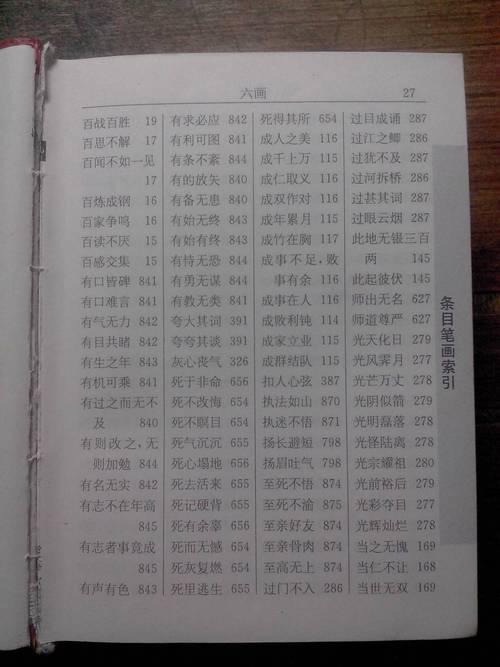 六画 27
百战百胜 19
百思不解 17
百闻不如一见
17
百炼成钢 16
百家争鸣 16
百读不厌 15
百感交集 15
有口皆碑 841
有口难言 841
有气无力 842
有目共睹 842
有生之年 843
有机可乘 841
有过之而无不
及 840
有则改之,无
则加勉 844
有名无实 842
有志不在年高
845
有志者事竟成
845
有声有色 843
有求必应 842
有利可图 841
有条不紊 844
有的放矢 840
有备无患 840
有始无终 843
有始有终 843
有恃无恐 844
有勇无谋 844
有教无类 841
夸大其词 391
夸夸其谈 391
灰心丧气 326
死于非命 656
死不改悔 654
死不瞑目 654
死气沉沉 655
死心塌地 656
死去活来 655
死记硬背 655
死有余辜 656
死而无憾 654
死灰复燃 654
死里逃生 655
死得其所 654
成人之美 116
成千上万 115
成仁取义 116
成双作对 116
成年累月 115
成竹在胸 117
成事不足,败
事有余 116
成事在人 116
成败利钝 114
成家立业 115
成群结队 115
扣人心弦 387
执法如山 870
执迷不悟 871
扬长避短 798
扬眉吐气 798
至死不悟 874
至死不渝 875
至亲好友 874
至亲骨肉 874
至高无上 874
过门不入 286
过目成诵 287
过江之鲫 286
过犹不及 287
过河拆桥 286
过甚其词 287
过眼云烟 287
此地无银三百
两 145
此起彼伏 145
师出无名 627
师道尊严 627
光天化日 279
光风霁月 277
光芒万丈 278
光阴似箭 279
光明磊落 278
光怪陆离 278
光宗耀祖 280
光前裕后 279
光彩夺目 277
光辉灿烂 278
当之无愧 169
当仁不让 168
当世无双 169
条目笔画索引